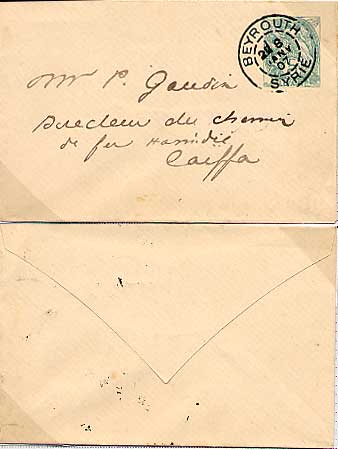 BEYROUTH
SYRIE
Mr P. Gaudin
Directeur du chemin
de fer Hamidié
Caiffa